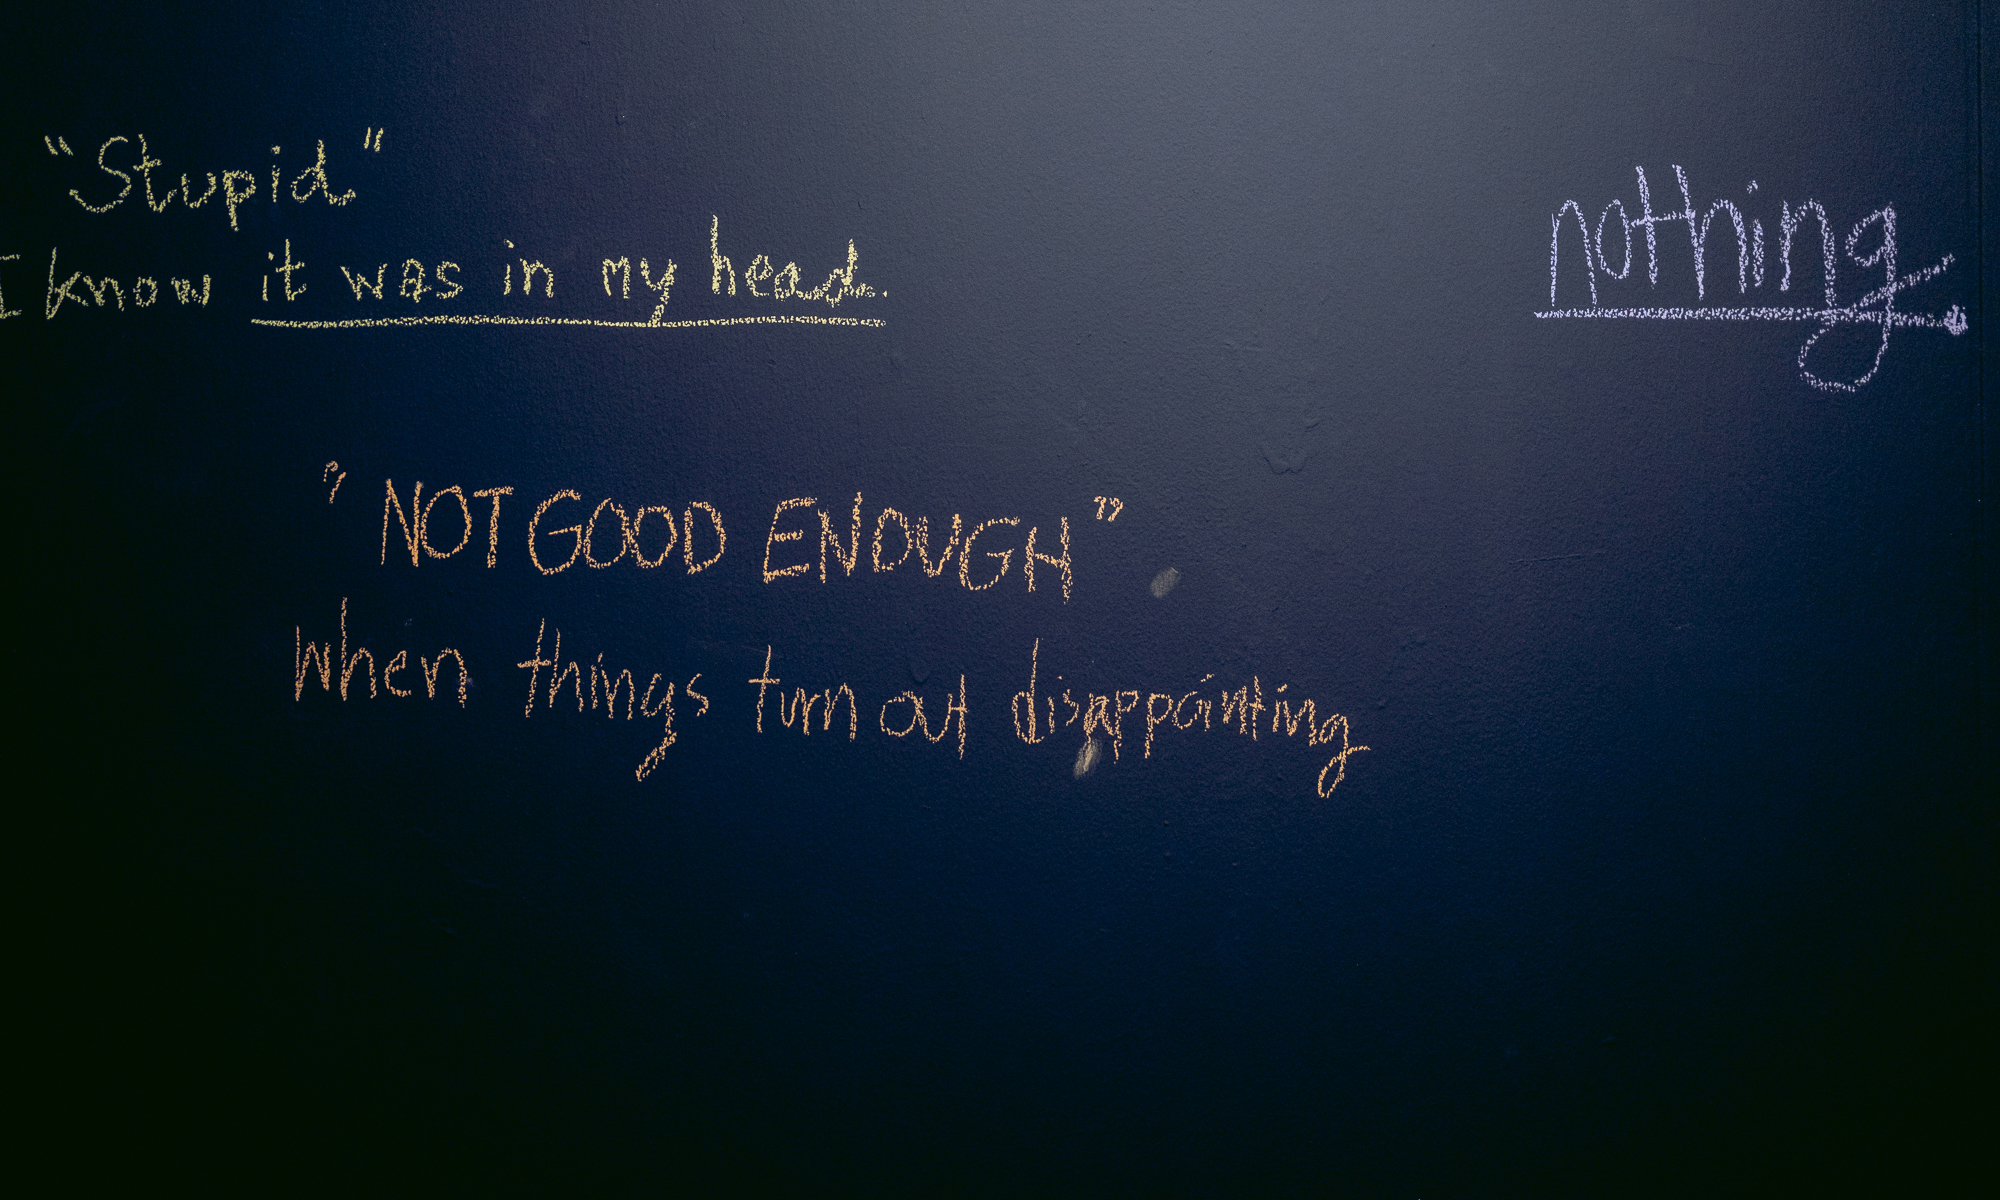 "Stupid"
I know it was in my head.
nothing
"NOT GOOD ENOUGH"
when things turn out disappointing